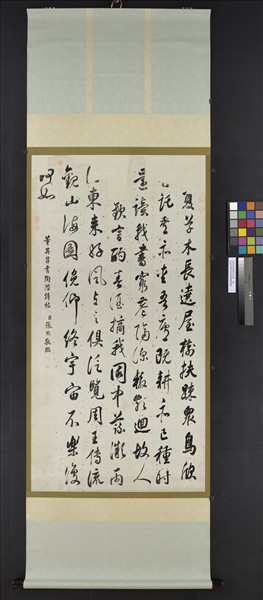 夏草木長遶屋樹扶疎衆鳥欣
有託吾亦愛吾廬既耕亦已種時
還讀我書窮巷隔深轍頗迴故人
歡言酌春酒摘我園中蔬微雨
從東來好風與之俱汎覽周王傳流
觀山海圖俛仰終宇宙不樂復
何如
董其昌書陶潛詩帖 臣張照敬臨